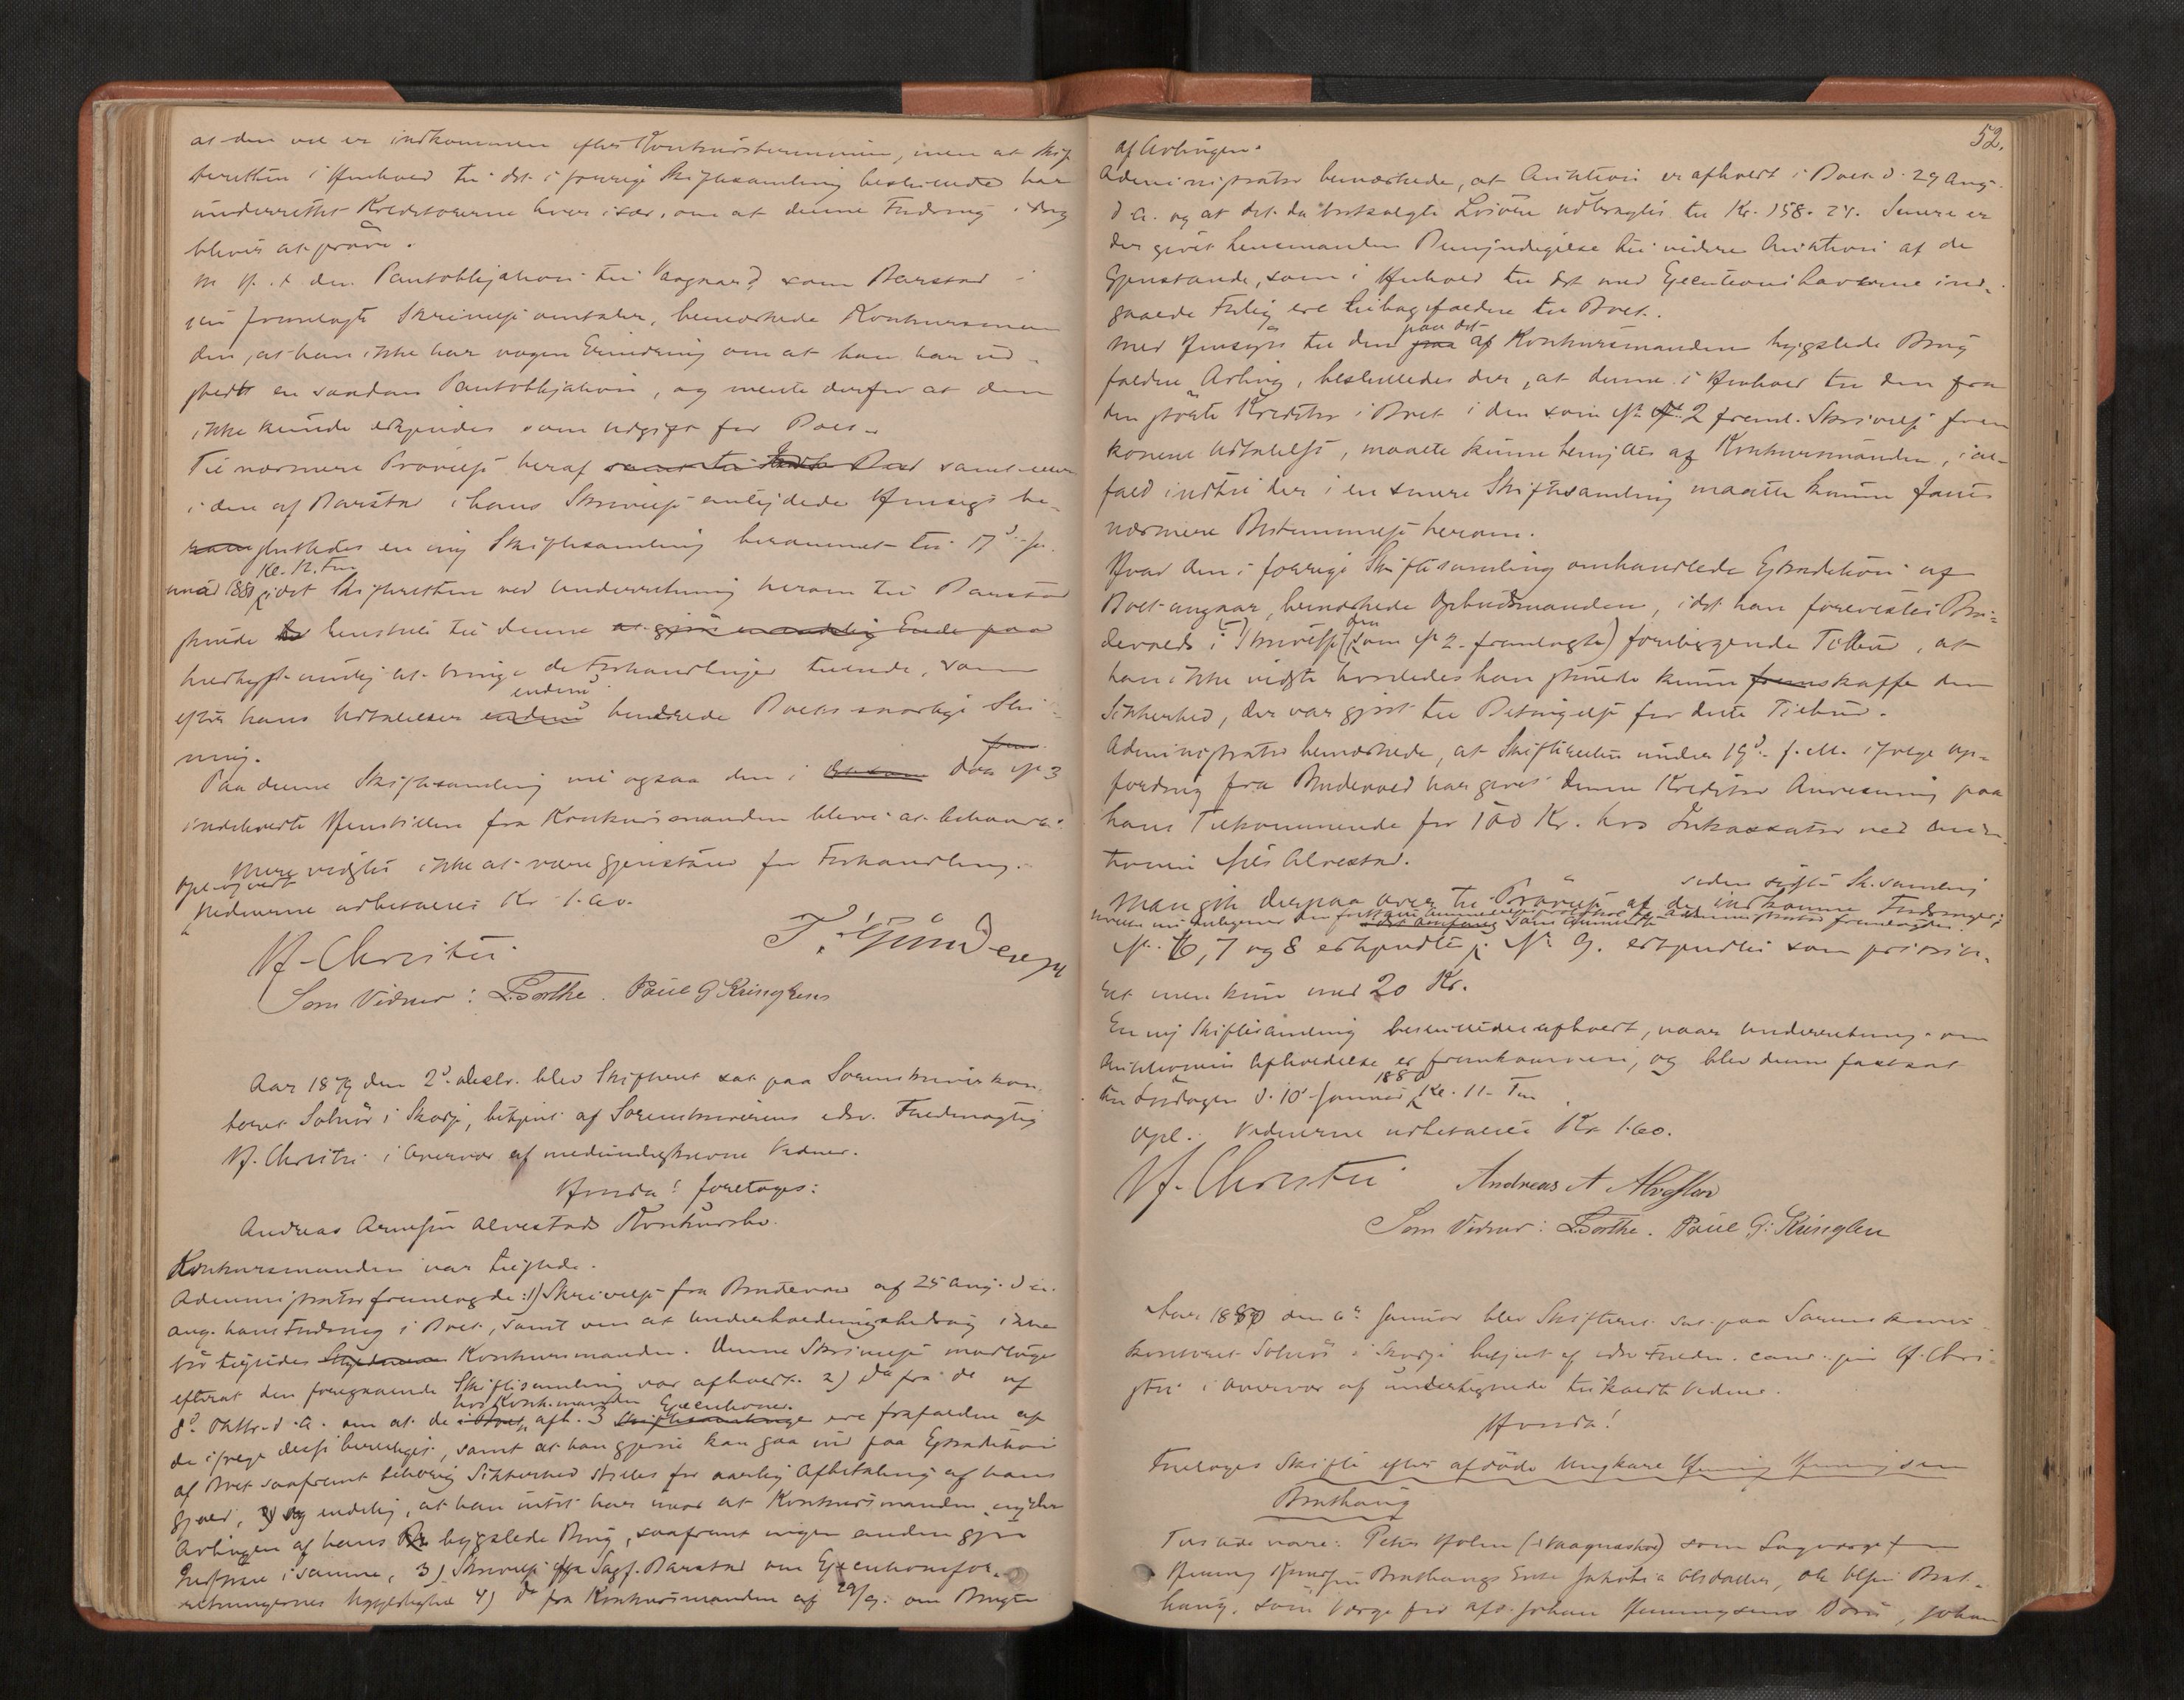 at den vel er indkommen efter Konkursterminen, men at Skif
teretten i Henhold til det i forrige Skiftesamling besluttede har
underrettet Kreditorerne hver især, om at denne Fordring idag
bliver at prøve.
M. H. t. den Pantobligation til Vaagnæs, som Barstad i
sin fremlagte Skrivelse omtaler, bemærkede Konkursman
den, at han ikke har nogen Erindring om at han har ud
stedt en saadan Pantobligation, og mente derfor at den
ikke kunde erkjendes som Udgift for Boet.
Til nærmere Prøvelse heraf samt
i den af Barstad i hans Skrivelse antydede Henseende be-
sluttedes en ny Skiftesamling berammet til 17de Ja
nuar 1880 Kl. 12 Fm idet Skifteretten ved Underretning herom til Barstad
skulde henstille til denne
hurtigst mulig at bringe de Forhandlinger tilende, som
efter hans Udtalelser endnu hindrede Boets snarlige Slut
ning.
Paa denne Skiftesamling vil ogsaa den i Dok No 3
indeholdte Henstillen fra Konkursmanden blive at behandle
Mere vidstes ikke at være Gjenstand for Forhandling.
Opl. og vedt
Vidnerne udbetaltes Kr 1.60.
H. Christie
Som Vidner: L. Dorthe. Paul G Kringlen
Aar 1879 den 2d Decbr. blev Skifteret sat paa Sorenskriverkon
toret Solnør i Skodje, betjent af Sorenskriverens edsv. Fuldmægtig
H. Christie i Overvær af medundertegnede Vidner.
Hvorda! foretages:
Andreas Arnesen Alvestads Konkursbo.
Konkursmanden var tilstede.
Administrator fremlagde: 1) Skrivelse fra Brudevold af 25 Aug. d. a.
ang. hans Fordring i Boet, samt om at Underholdningsbidrag ikke
bør tilstedes Konkursmanden. Denne Skrivelse modtoges
efterat den foregaaende Skiftesamling var afholdt. 2) do fra do af
8d Oktbr. d. A. om at de hos Konk.manden afh. 3 Executioner ere frafaldne af
de ifølge disse berettiget, samt at han gjerne kan gaa ind paa Extradition
af Boet saafremt behørig Sikkerhed stilles for aarlig Afbetaling af hans
Gjæld, og endelig, at han intet har imod at Konkursmanden nyder
Avlingen af hans bygslede Brug, saafremt ingen anden gjør
Indsigelse i samme, 3) Skrivelse fra Sagf. Barstad om Executionsfor-
retningernes 4) do fra Konkursmanden af 29/9. om Brugen
52.
af Avlingen.
Administrator bemærkede, at Auktion er afholdt i Boet d. 29 Aug.
d. A. og at det da bortsolgte Løsøre udbragtes til Kr. 158. 24. Senere er
der givet Lensmanden Bemyndigelse til videre Auktion af de
Gjenstande, som i Henhold til det med Executionshaverne ind-
gaaede Forlig ere tilbagefaldne til Boet.
Med Hensyn til den paa det af Konkursmanden bygslede Brug
faldne Avling, besluttedes der, at denne i Henhold til den fra
den største Kreditor i Boet i den som No 2 freml. Skrivelse frem
komne Udtalelse, maatte kunne benyttes af Konkursmanden, ial-
fald indtil der i en senere Skiftesamling maatte kunne faaes
nærmere Bestemmelse herom.
Hvad den i forrige Skiftesamling omhandlede Extradition af
Boet angaar, bemærkede Opbudsmanden, idet han forevistes Bru-
devolds i Skrivelse (den som No 2. fremlagte) foreliggende Tilbud, at
han ikke vidste hvorledes han skulde kunne skaffe den
Sikkerhed, der var gjort til Betingelse for dette Tilbud.
Administrator bemærkede, at Skifteretten under 19d f. M. ifølge Op-
fordring fra Brudevold har givet denne Kreditor Anvisning paa
hans Tilkommende for 100 Kr. hos Inkassator ved Auk
tionen Nils Alvestad.
Man gik derpaa over til Prøvelse af de siden sidste Sk.samling indkomne Fordringer:
No 6, 7 og 8 erkjendtes No 9. erkjendtes som priorit
et men kun med 20 Kr.
En ny Skiftesamling besluttedes afholdt, naar Underretning om
Auktionens Afholdelse er fremkommen, og blev denne fastsat
til Lørdagen d. 10 Januar 1880 Kl. 11 Fm
Opl. Vidnerne udbetaltes Kr 1.60.
H. Christie Andreas A Alvestad
Som Vidner: L. Dorthe. Paul G. Kringlen
Aar 1880 den 6te Januar blev Skifteret sat paa Sorenskriver
kontoret Solnør i Skodje betjent af edsv. Fuldm. cand. jur. H. Chri
stie i Overvær af undertegnede tilkaldte Vidner.
Hvorda!
Foretages Skifte efter afdøde Ungkarl Henning Henningsen
Brathaug
Tilstede vare: Peter Holm som Lagværge for
Henning Brathaugs Enke Olsdatter, Ole Brat-
haug, som Værge for afd. Johan Henningsens Børn, Johan